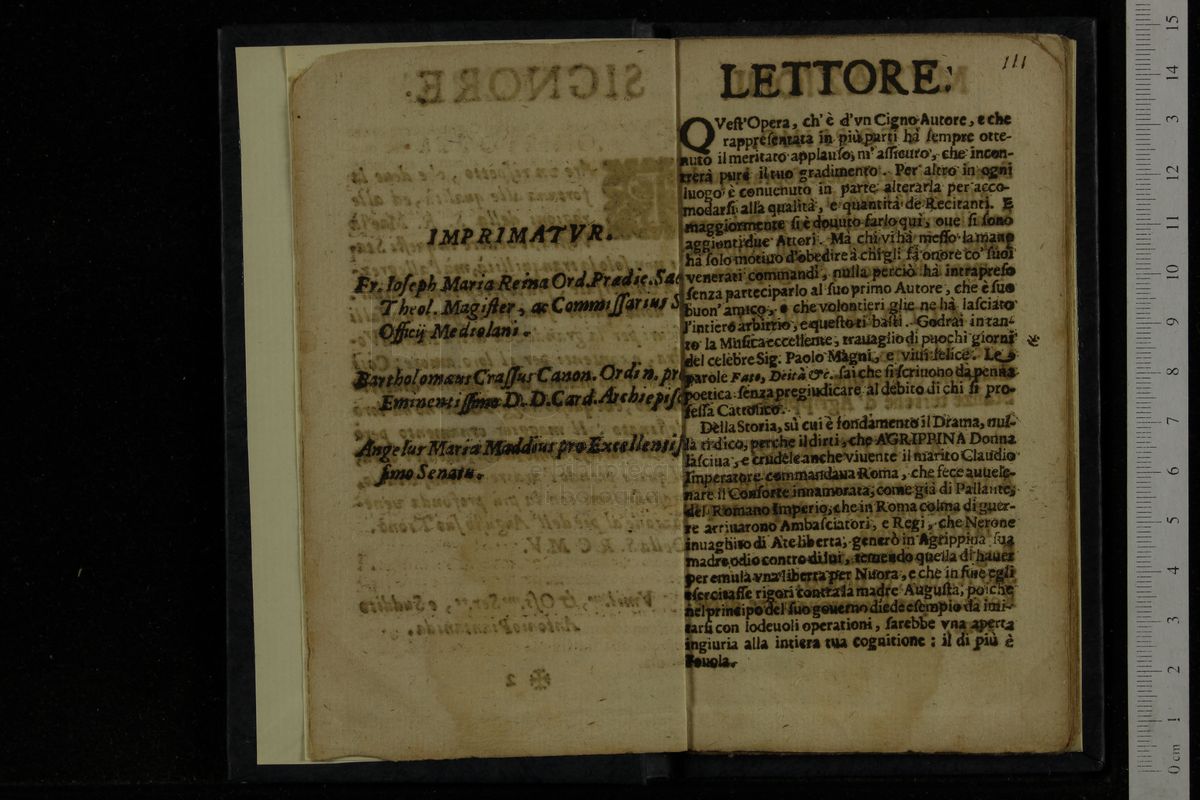 IMPRIMATVR.
Fr. Ioseph Maria Reina Ord. Prædic. Sac
Theol. Magister, ac Commissarius S.
Officij Mediolani.
Bartholomæus Crassus Canon. Ordin. pro
Eminentissimo D. D. Card. Archiepisc
Angelus Maria Maddius pro Excellentis
simo Senatu.
LETTORE:
111
QVest'Opera, ch'è d'vn Cigno Autore, e che
rappresentata in più parti hà sempre otte-
nuto il meritato applauso, m'assicuro, che incon-
trerà pure il tuo gradimento. Per altro in ogni
luogo è conuenuto in parte alterarla per acco-
modarsi alla qualità, e quantità de Recitanti. E
maggiormente si è douuto farlo quì, oue si sono
aggionti due Attori. Mà chi vi hà messo la mano
hà solo motiuo d'obedire à chi gli fà onore co' suoi
venerati commandi, nulla perciò hà intrapreso
senza parteciparlo al suo primo Autore, che è suo
buon' amico, e che volontieri glie ne hà lasciato
l'intiero arbitrio, e questo ti basti. Godrai in tan-
to la Musica eccellente, trauaglio di puochi giorni
del celebre Sig. Paolo Magni, e viui felice. Le
parole Fato, Deità &c. sai che si scriuono da penna
poetica senza pregiudicare al debito di chi si pro-
fessa Cattolico.
Della Storia, sù cui è fondamento il Drama, nul-
la ti dico, perche il dirti, che AGRIPPINA Donna
lasciua, e crudele anche viuente il marito Claudio
Imperatore commandaua Roma, che fece auuele-
nare il Consorte innamorata, come già di Pallante,
del Romano Imperio, che in Roma colma di guer-
re arriuarono Ambasciatori, e Regi, che Nerone
inuaghito di Ate liberta, generò in Agrippina sua
madre odio contro di lui, temendo quella di hauer
per emula vna liberta per Nuora, e che in fine egli
esercitasse rigori contra la madre Augusta, poiche
nel principo del suo gouerno diede esempio da imi-
tarsi con lodeuoli operationi, sarebbe vna aperta
ingiuria alla intiera tua cognitione: il di più è
Fauola.